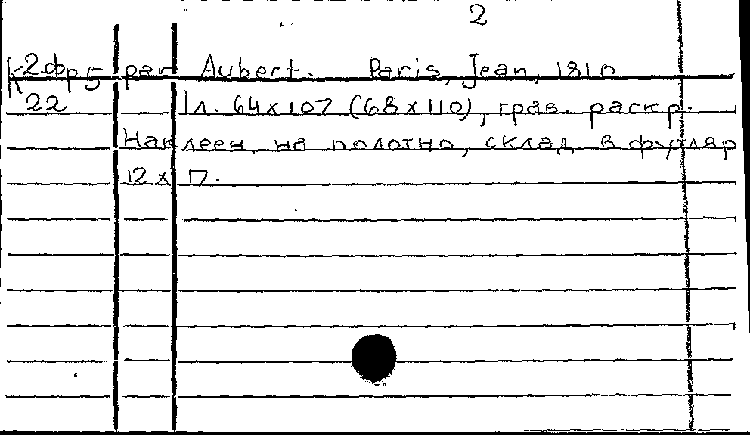 2
К 2фр5 par Aubert. Paris, Jean, 1810
22 1л. 64х107 (68х110), грав. раскр.
Наклеен на полотно, склад. в футляр
12х17.